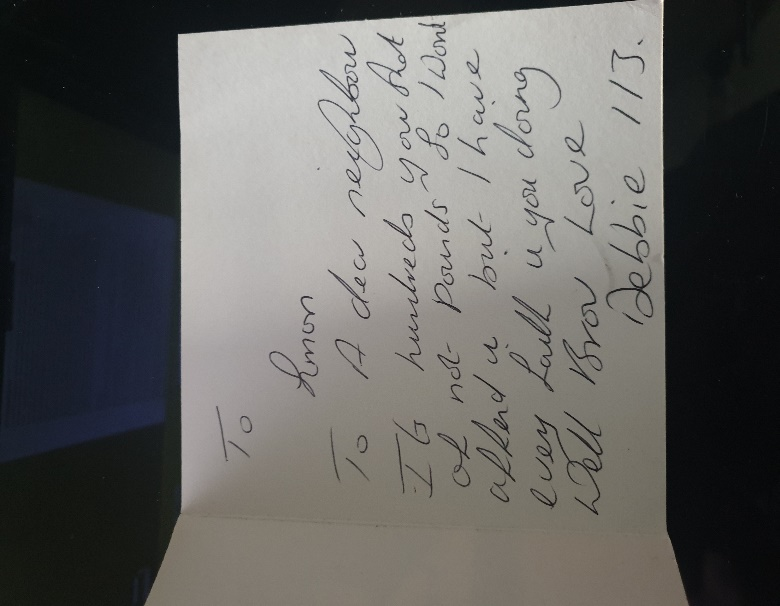 To
Simon
To A dear neighbour
hundreds you that
of not Pounds So I Wont
afferd it but I have
every faith u you doing
Well Brov Love
Debbie 113.